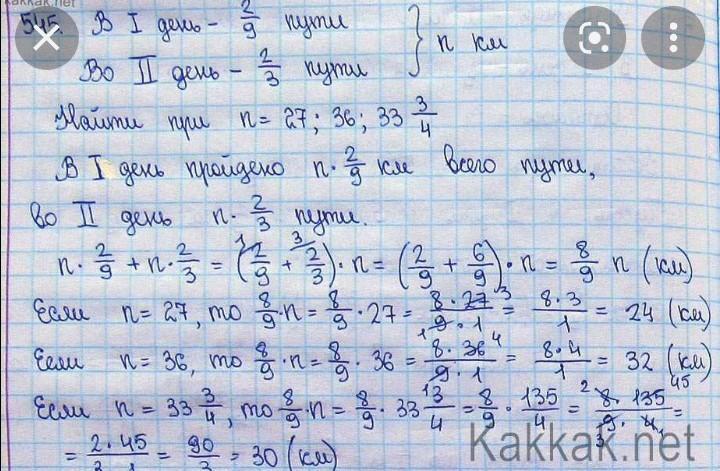 kakkak.net
545. В I день - 2/9 пути } n км
Во II день - 2/3 пути
Найти при n = 27; 36; 33 3/4
В I день пройдено n · 2/9 км всего пути,
во II день n · 2/3 пути.
n · 2/9 + n · 2/3 = (2/9 + 2/3) · n = (2/9 + 6/9) · n = 8/9 n (км)
Если n = 27, то 8/9 · n = 8/9 · 27 = 8 · 27/9 · 1 = 8 · 3/1 = 24 (км)
Если n = 36, то 8/9 · n = 8/9 · 36 = 8 · 36/9 · 1 = 8 · 4/1 = 32 (км)
Если n = 33 3/4, то 8/9 · n = 8/9 · 33 3/4 = 8/9 · 135/4 = 8 · 135/9 · 4 =
= 2 · 45/3 · 1 = 90/3 = 30 (км)
Kakkak.net